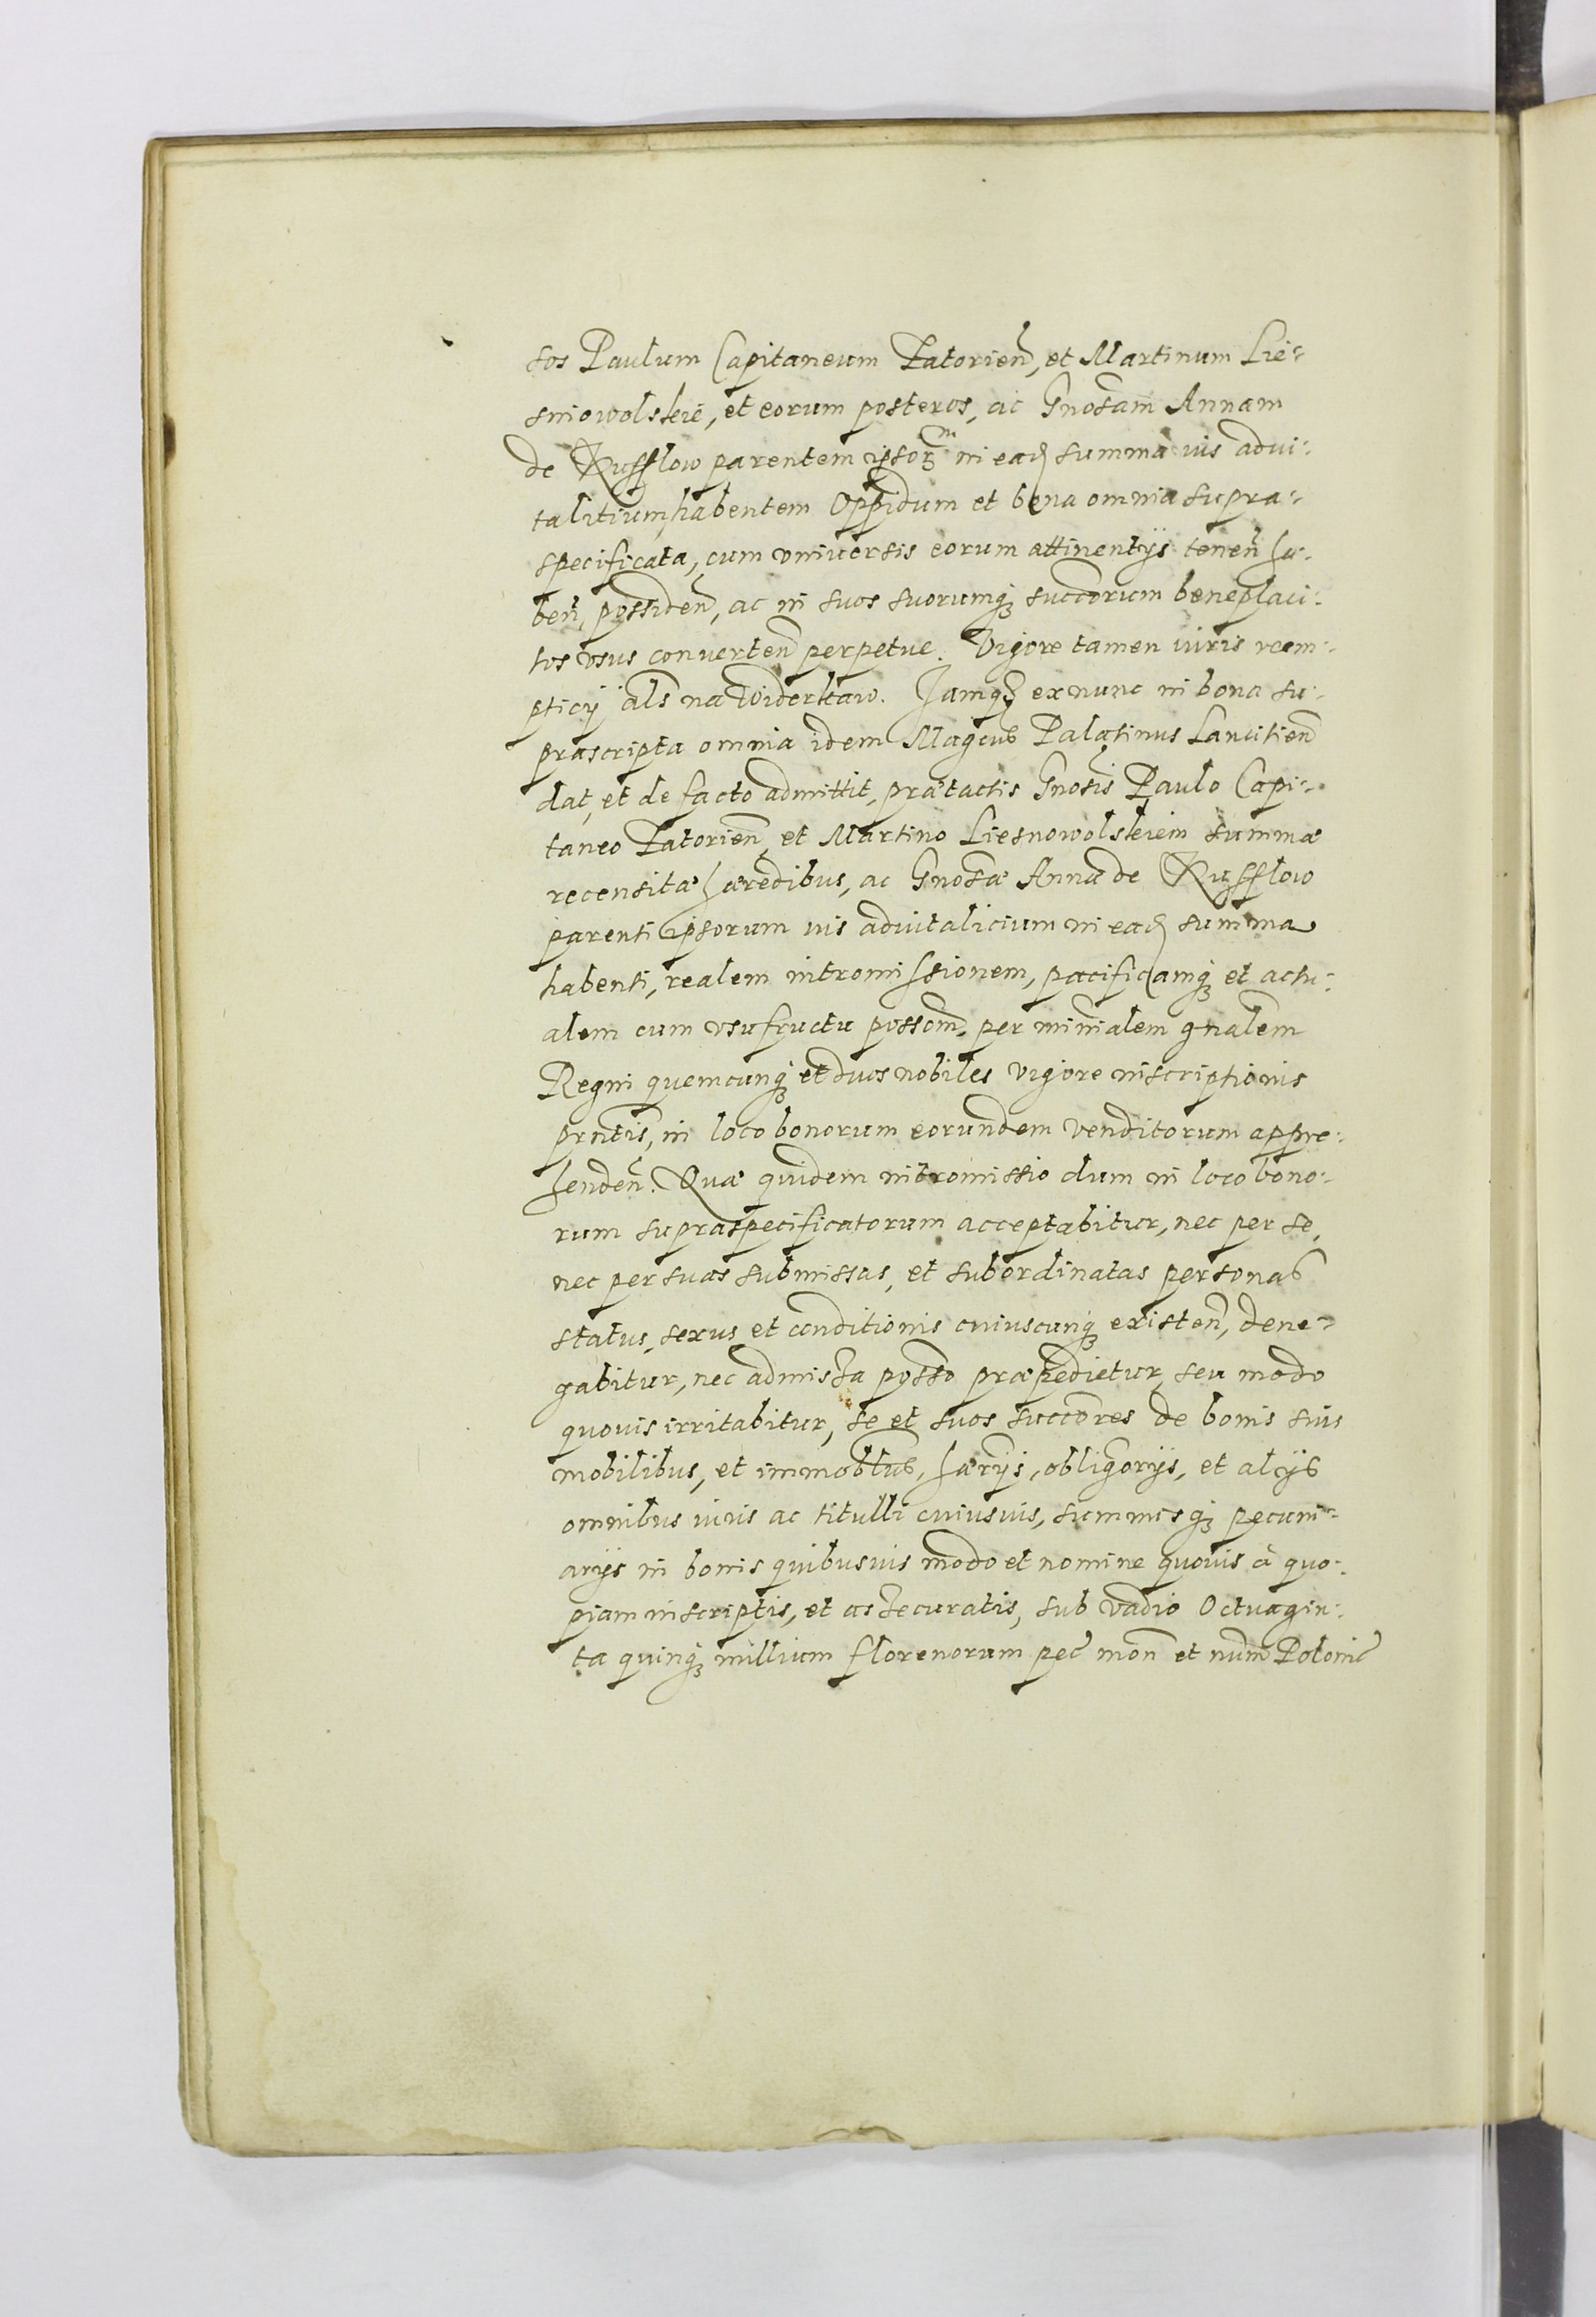 sos Paulum Capitaneum Latorien̄, et Martinum Lie-
sniowolskie, et eorum posteros, ac Gnosam Annam
de Kufflow parentem ipsorꝫ in eadꝫ summa ius advi-
talitium, habentem Oppidum et bona omnia supra-
specificata, cum vniuersis eorum attinentijs tenen̄ ha-
ben̄, possiden̄, ac in suos suorumqꝫ succorum beneplaci-
tos vsus conuerten̄ perpetue. Vigore tamen iuris reem-
pticij als na widerkaw. Iamqꝫ ex nunc in bona su-
prascripta omnia idem Magcus Palatinus Lancitien̄
dat, et de facto admittit, prætactis Gnosis Paulo Capi-
taneo Latorien̄, et Martino Liesnowolskiem summæ
recensitæ hæredibus, ac Gnosæ Annæ de Kufflow
parenti ipsorum ius advitalicium in eadꝫ summa
habenti, realem intromissionem, pacificamqꝫ et actu-
alem cum vsufructu possom̄, per min̄ialem gnalem
Regni quemcunqꝫ et duos nobiles vigore inscriptionis
prn̄tis, in loco bonorum eorundem venditorum appre-
henden̄. Quæ quidem intromissio dum in loco bono-
rum supraspecificatorum acceptabitur, nec per se,
nec per suas submissas, et subordinatas personas
status, sexus et conditionis cuiuscunqꝫ existen̄, dene-
gabitur, nec admissa posso præpedietur, seu modo
quouis irritabitur, se et suos succores de bonis suis
mobilibus, et immobibus, hærijs, obligorijs, et alijs
omnibus iuris ac titulli cuiusuis, summisqꝫ pecuni-
arijs in bonis quibusuis modo et nomine quouis à quo-
piam inscriptis, et assecuratis, sub vadio Octuagin-
ta quinqꝫ millium florenorum pec mon̄ et num̄ Polonic